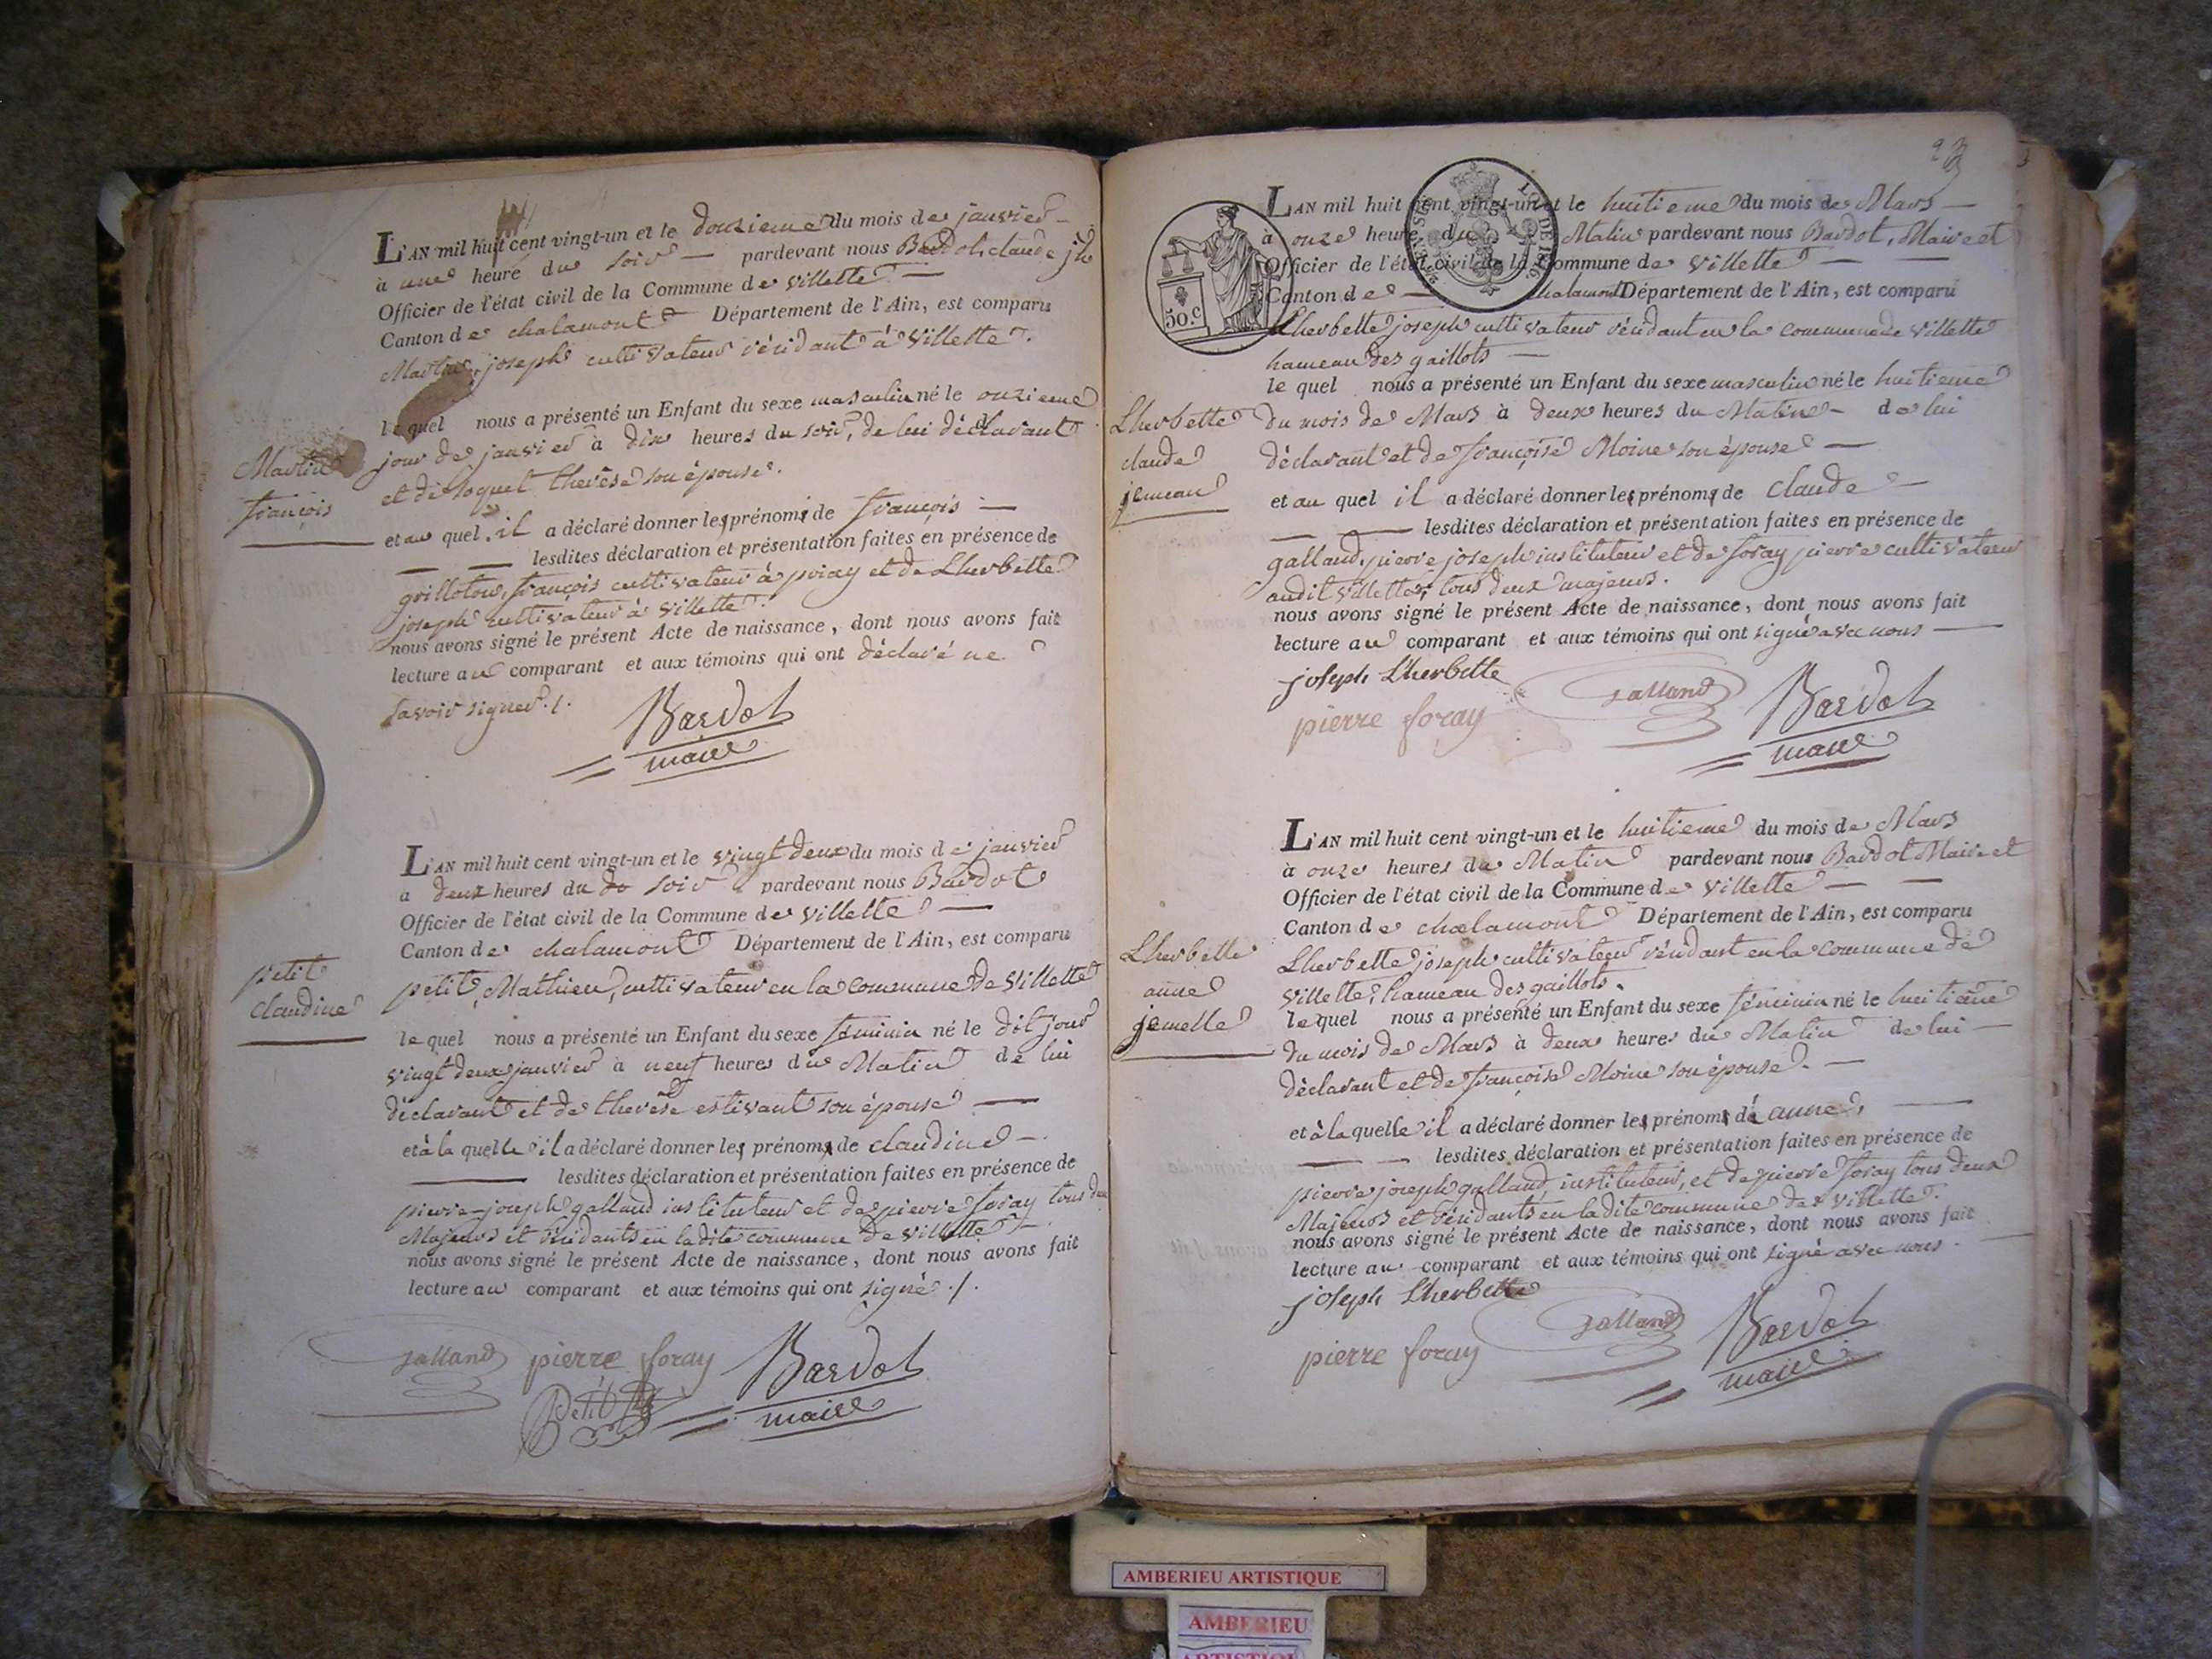 L'AN mil huit cent vingt-un et le douzieme du mois de janvier
à une heure du soir pardevant nous Bardot, claude
Officier de l'état civil de la Commune de villette
Canton de chalamont Département de l'Ain, est comparu
Martin, joseph cultivateur résidant à villette.
le quel nous a présenté un Enfant du sexe masculin né le onzieme
jour de janvier à dix heures du soir, de lui déclarant
et de loquet therèse son épouse.
et au quel il a déclaré donner les prénoms de françois
lesdites déclaration et présentation faites en présence de
françois cultivateur à priay et de Lherbette
joseph cultivateur à villette.
nous avons signé le présent Acte de naissance, dont nous avons fait
lecture au comparant et aux témoins qui ont déclaré ne
savoir signer ./.
Bardot
maire
Martin
françois
L'AN mil huit cent vingt-un et le vingt deux du mois de janvier
a deux heures du do soir pardevant nous Bardot
Officier de l'état civil de la Commune de villette
Canton de chalamont Département de l'Ain, est comparu
petit, Mathieu, cultivateur en la commune de villette
le quel nous a présenté un Enfant du sexe féminin né le dit jour
vingt deux janvier à neuf heures du Matin de lui
déclarant et de therèse estivant son épouse
et à la quelle il a déclaré donner les prénoms de claudine
lesdites déclaration et présentation faites en présence de
pierre-joseph galland instituteur et de pierre foray tous
Majeurs et résidants en la dite commune de villette
nous avons signé le présent Acte de naissance, dont nous avons fait
lecture au comparant et aux témoins qui ont signé ./.
galland pierre foray Bardot
petit maire
petit
claudine
23
L'AN mil huit cent vingt-un et le huitieme du mois de Mars
à onze heure du Matin pardevant nous Bardot, Maire et
Officier de l'état civil de la Commune de villette
Canton de chalamont Département de l'Ain, est comparu
Lherbette joseph cultivateur résidant en la commune de villette
hameau des gaillots
le quel nous a présenté un Enfant du sexe masculin né le huitieme
du mois de Mars à deux heures du Matin de lui
déclarant et de françoise Moine son épouse
et au quel il a déclaré donner les prénoms de claude
lesdites déclaration et présentation faites en présence de
galland, pierre joseph instituteur et de foray pierre cultivateur
audit villette, tous deux majeurs.
nous avons signé le présent Acte de naissance, dont nous avons fait
lecture au comparant et aux témoins qui ont signé avec nous
joseph Lherbette
pierre foray galland Bardot
maire
Lherbette
claude
jemeau
50.c
L'AN mil huit cent vingt-un et le huitieme du mois de Mars
à onze heures du Matin pardevant nous Bardot Maire et
Officier de l'état civil de la Commune de villette
Canton de chalamont Département de l'Ain, est comparu
Lherbette joseph cultivateur résidant en la commune de
villette, hameau des gaillots.
le quel nous a présenté un Enfant du sexe féminin né le huitième
du mois de Mars à deux heures du Matin de lui
déclarant et de françoise Moine son épouse.
et à la quelle il a déclaré donner les prénoms de anne,
lesdites déclaration et présentation faites en présence de
pierre joseph galland, instituteur, et de pierre foray tous deux
Majeurs et résidants en la dite commune de villette.
nous avons signé le présent Acte de naissance, dont nous avons fait
lecture au comparant et aux témoins qui ont signé avec nous.
joseph Lherbette
pierre foray galland Bardot
maire
Lherbette
anne
jemelle
AMBERIEU ARTISTIQUE
AMBERIEU
ARTISTIQUE